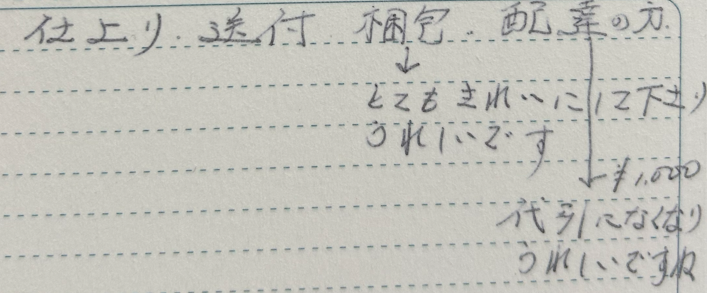 仕上り. 送付 梱包. 配達の方.
↓
とてもきれいにして下さり
うれしいです
↓ ¥1,000
代引になくなり
うれしいですね